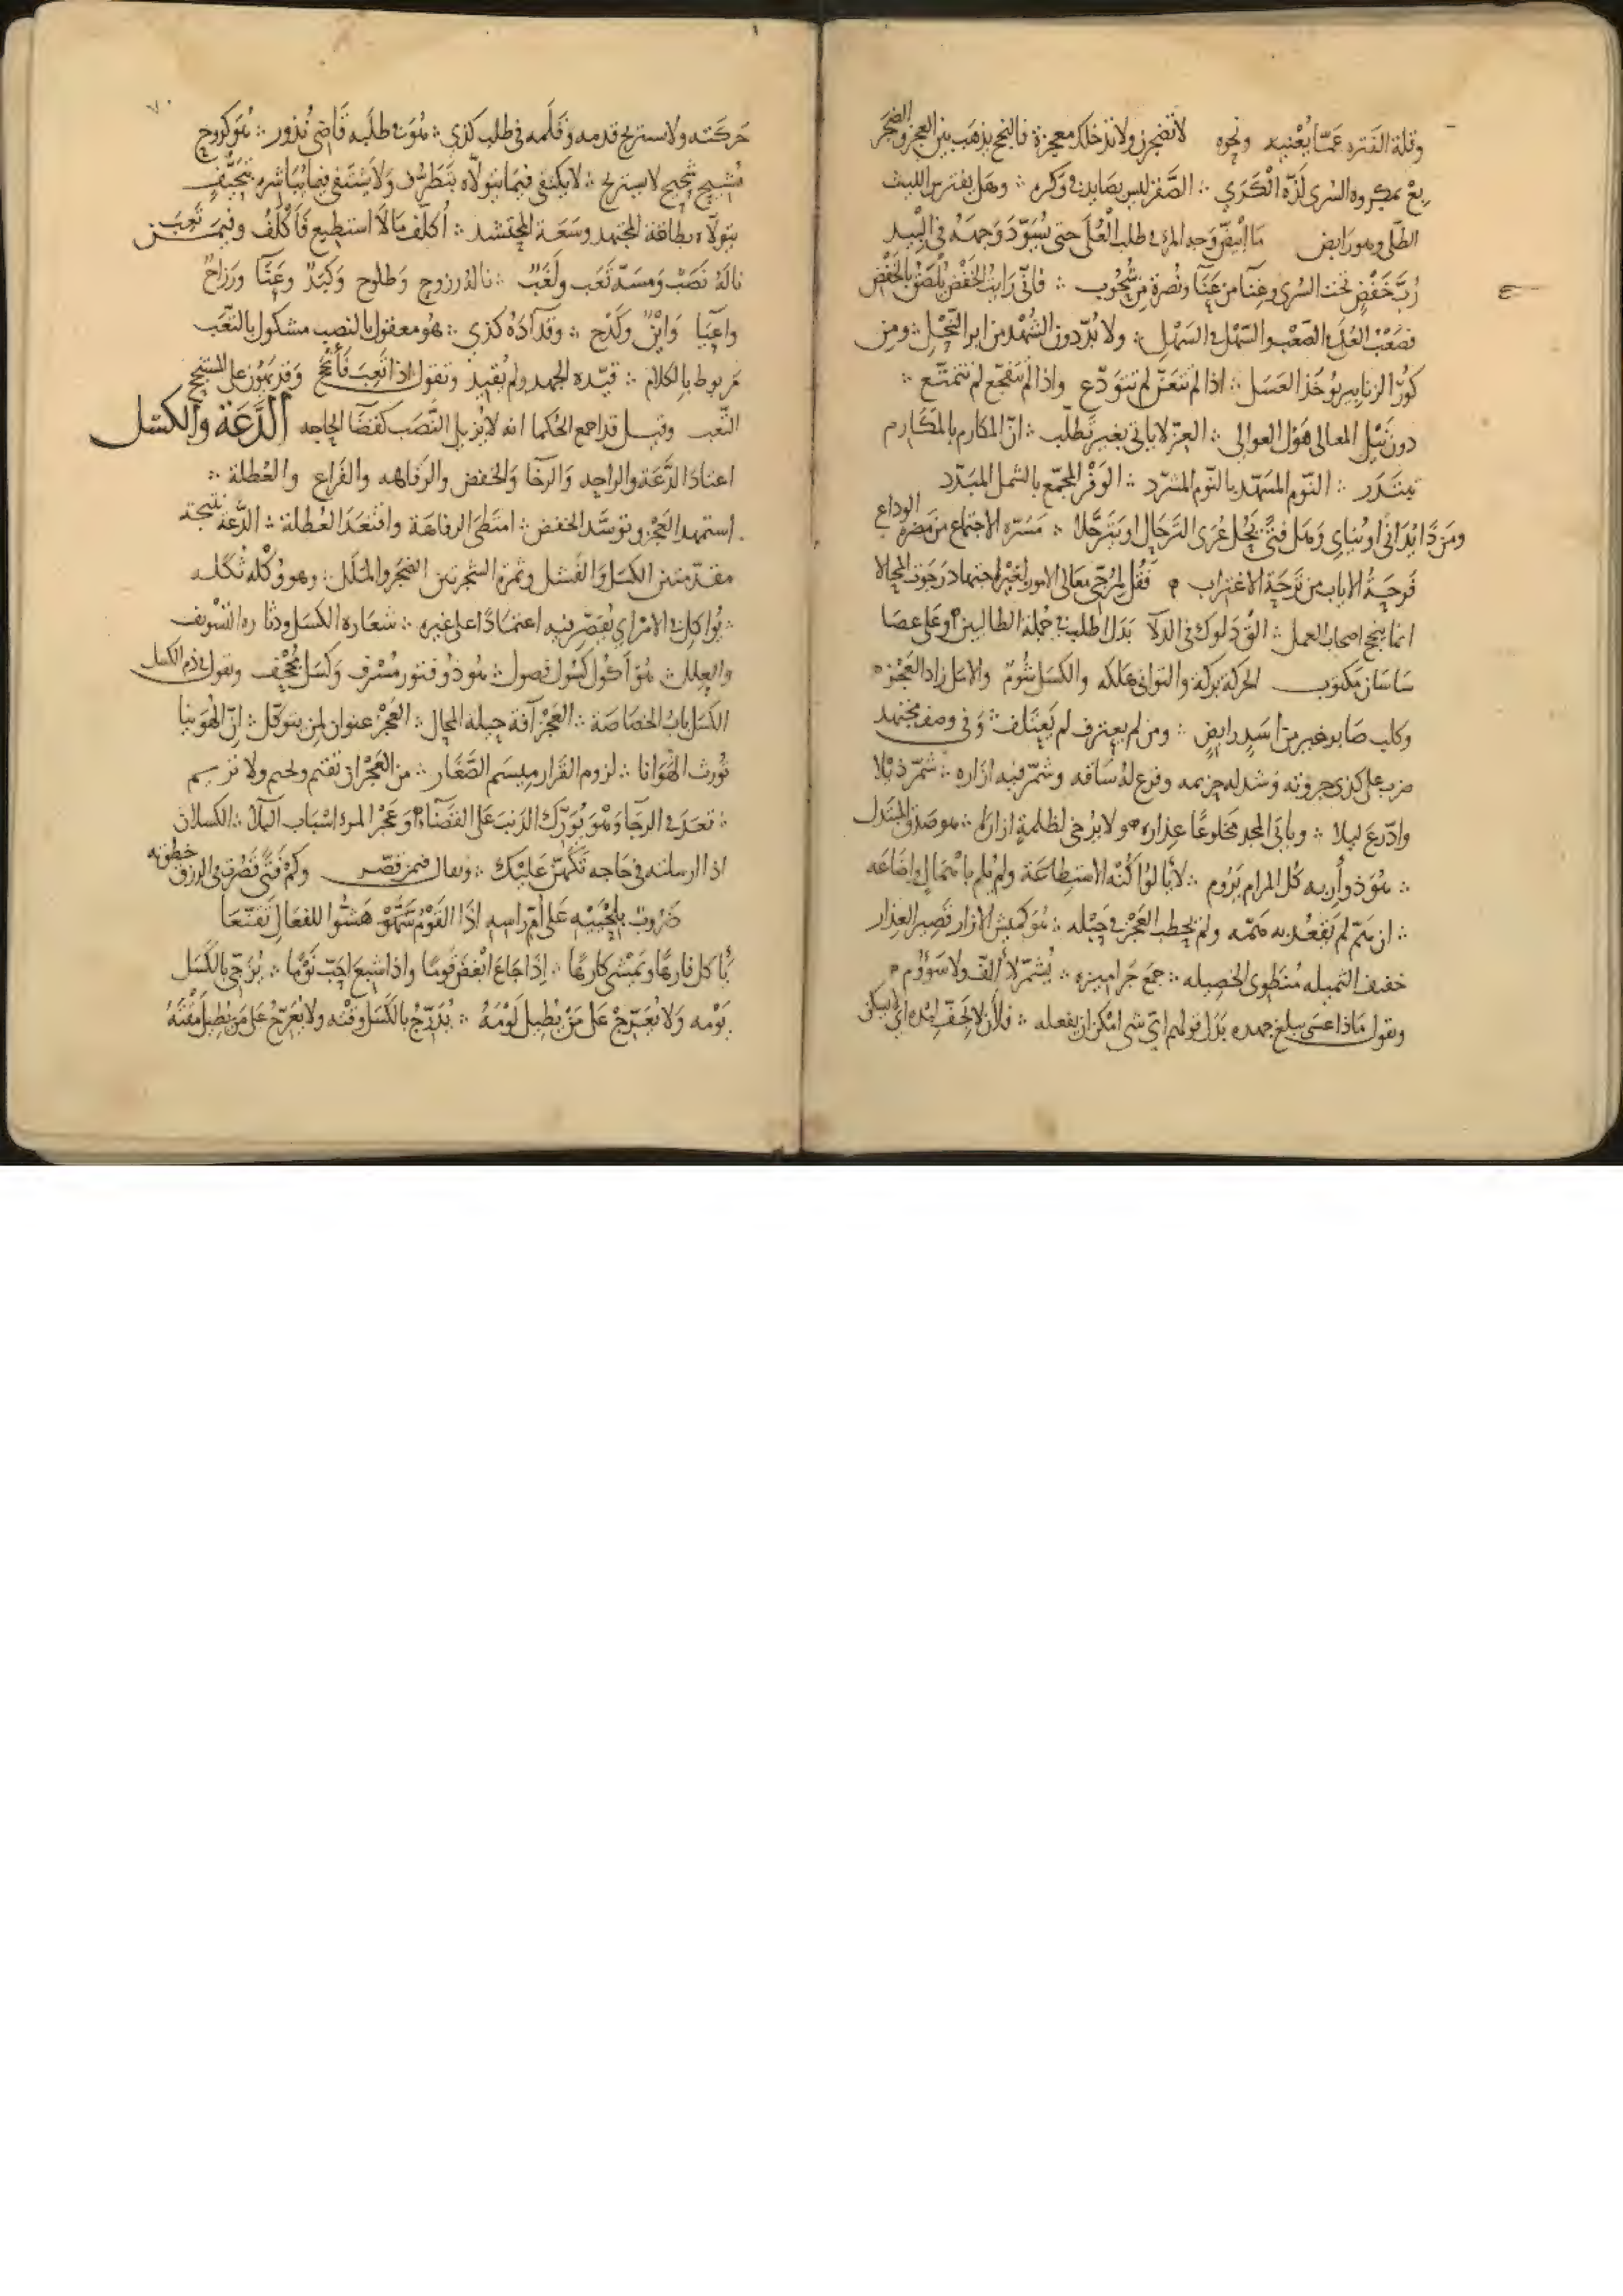 وقلة الفتره عمّا يُعْنيه ونحوه لا تضجرن ولا تدخلك معجزة فالنجح يذهب بين العجز والضجَر
بِعْ بمكروه السُرى لذّة الكَرَي ∴ الصَّقر ليس بصايد في وَكره ∴ وهل يفترس الليث
الطّلى وهو رابض مَا ابيضّ وَجه المرء في طلب العُلَى حتى يُسَوّدَ وَجهَهُ في البيد
رُبَّ خَفْضٍ تحت السُرى وعنآ من عَنَآ ونُضرة مِن شُحُوب ∴ فانّي رَايتُ الخَفْضَ يُلصق بالخَفْض
فصَعْبُ العُلَى في الصَّعْب والسّهل في السَهْلِ ∴ ولا بُدّ دون الشُهْد من ابر النّحْلِ ∴ ومن
كُورّ الزنابير يُوخَذ العَسَل ∴ اذا لم تتعَنّ لم تتودّع واذا لم تتفجّع لم تتمتّع ∴
دون نَيْلِ المعالى هَوْل العوالي ∴ العِزّ لا ياتى بغير تطلّب ∴ انّ المكارم بالمكَارم
تبتدر ∴ النّوم المسَهّد بالنّوم المشرّد ∴ الوَفْر المجمّع بالشمل المبَدّد
ومَن ذَا يُدَانى او يُنَاءى وَهَل فتىً يَحُل عُرَى التَرحَال او يَتَرحّلا ∴ مَسَرّه الاجتماع من مَضره الوداع
فَرحَةُ الاياب من تَرحَة الاغتراب م فَقُل لمُرَجّى معَالى الامور بغير اجتهاد رَجَوتَ المحالا
انما ينجح اصحاب العمل ∴ الق دَلوك في الدلآ بَدَل اطلب في جُملة الطالبين م وعَلى عصَا
سَاسَان مكتوب الحركة بركة والتوانى هَلكه والكسَل شُومٌ والامَل زاد العَجَزه
وكلب صَايد خير من اسَدٍ رابضٍ ∴ ومن لم يعترف لم يَعتَلف ∴ وَفي وصف مجتهد
ضرب على كذى جروته وشد له حزيمه وقرع لهُ سَاقه وشمّر فيه ازاره ∴ شمّر ذيلا
وادّرع ليلا ∴ وياتى المجد مخلوعًا عِذاره م ولا يُرخى لظلمةٍ ازارله ∴
∴ هُوَ ذو أرَبٍ به كُل المرام يَرُوم ∴ لا يَالوا كُنْه الاستطاعَة ولم يُلم باهمالٍ واضَاعَه
∴ ان هَمّ لم تَقعُد به هَمّه ولم يحطب العَجز في حَبْله ∴ هُوَ كميش الازار قصِير العِذار
خفيف الثميله مُنطَوى الخصِيله ∴ جمعَ جَراميزه ∴ يُشمّر لا ألِفٌ ولا سَؤُوم م
وتقول مَاذا عسَى يبلغ جهده بَدَل قولهم ايّ شى امْكن ان يفعله ∴ فلان لا يَجفّ لبده اي لا يسكن
حَركَته ولا يستريح قدمه وقَلَمه في طلب كذى ∴ هُوَ في طلبه قَاضي نُذور ∴ هُوَ كدُوح
مُشيح نجيح لا يستريح ∴ لا يكتفى فيمَا يتولاّه بتَطَرّف وَلا يَشتفى فيمَا يُبَاشره بتحيُّف
يتولاّه بطاقة المجتهد وسَعَة المحتشد ∴ أُكَلّف مَا لاَ استطيع فَأكْلَفُ وفيمَــن تَعِبَ
نالهُ نَصَبٌ وَمسَهُ تَعَب ولَغَبٌ ∴ نالهُ رزوح وَطلوح وَكَبَدٌ وعَنَآ ورَزاحٌ
واعيَا وَاينٌ وكَدح ∴ وقد آدَهُ كذى ∴ هُو معقول بالنصب مشكول بالتعَب
مَربوط بالكلام ∴ قيّده الجهد ولم يُقيد وتقول اذا تَعِبَ فَأنْجَحَ وَقد يَهُون على المستنجح
التّعب وقيــل قد اجمع الحُكما انه لا يُزيل النَّصَب كقضَا الحاجه الدَّعَة والكسَل
اعتادَ الدَّعَة والراحه وَالرخَا وَالخفض والرَفاهه والفَراغ والعُطلة ∴
استمهد العَجز وتوسَّد الخفض ∴ امتَطَى الرفاهَة واقتعَدَ العُطلة ∴ الدَّعَة نتيجة
مقدّمتين الكسَل وَالفشل وثمرة الشجرتين الضَجَر والمَلَل ∴ وهو وُكْلة تُكَله
∴ يُواكل في الامر اي يُقصّر فيه اعتمَادًا على غيره ∴ شعَاره الكسَل ودثاره التسْويف
والعِلل ∴ هُوَ أكُول كسُول فصول ∴ هُو ذُو فتور مُسْرف وَكسَل مُجْحِف وتقول في ذم الكسل
الكسَل بابُ الخصَاصَة ∴ العَجز آفة حيلة المحال ∴ العَجز عنوان لمن يتوكّل ∴ إنّ الهُوَينا
تُورث الهَوَانا ∴ لزوم القَرار مِيسَم الصَّغَار ∴ من العَجْز ان تقيم
∴ تعدَ في الرجَا وَهُوَ يُوَرّك الذنبَ عَلى القضَآء م وعَجز المرء اسْبَاب البَلآء ∴ الكسلان
اذا ارسلته في حَاجه تَكَهَّنَ عَلَيْك ∴ ويقال فيمن قصّر وكم فَتىً قَصُرت في الرزق خطوته
ضَرُوبٌ بِلِحْيَيْه عَلى أمّ راسِهِ اذَا القَوْمُ هَشُّوا للفعَالِ تَقَنّعَا
يَأكل فارهًا ويَمشى كارهًا ∴ اِذَا جَاعَ ابْغضَ قومًا واذا شبعَ احَبّ نَوْمًا ∴ يُزَجّى بالكسَل
يَوْمه وَلا يُعَرّج عَلَى مَنْ يُطيل لَوْمَهُ ∴ يُدَرّجُ بالكَسَل وقته ولا يُعَرّجُ عَلى مَن يُطيل مَقْتَهُ